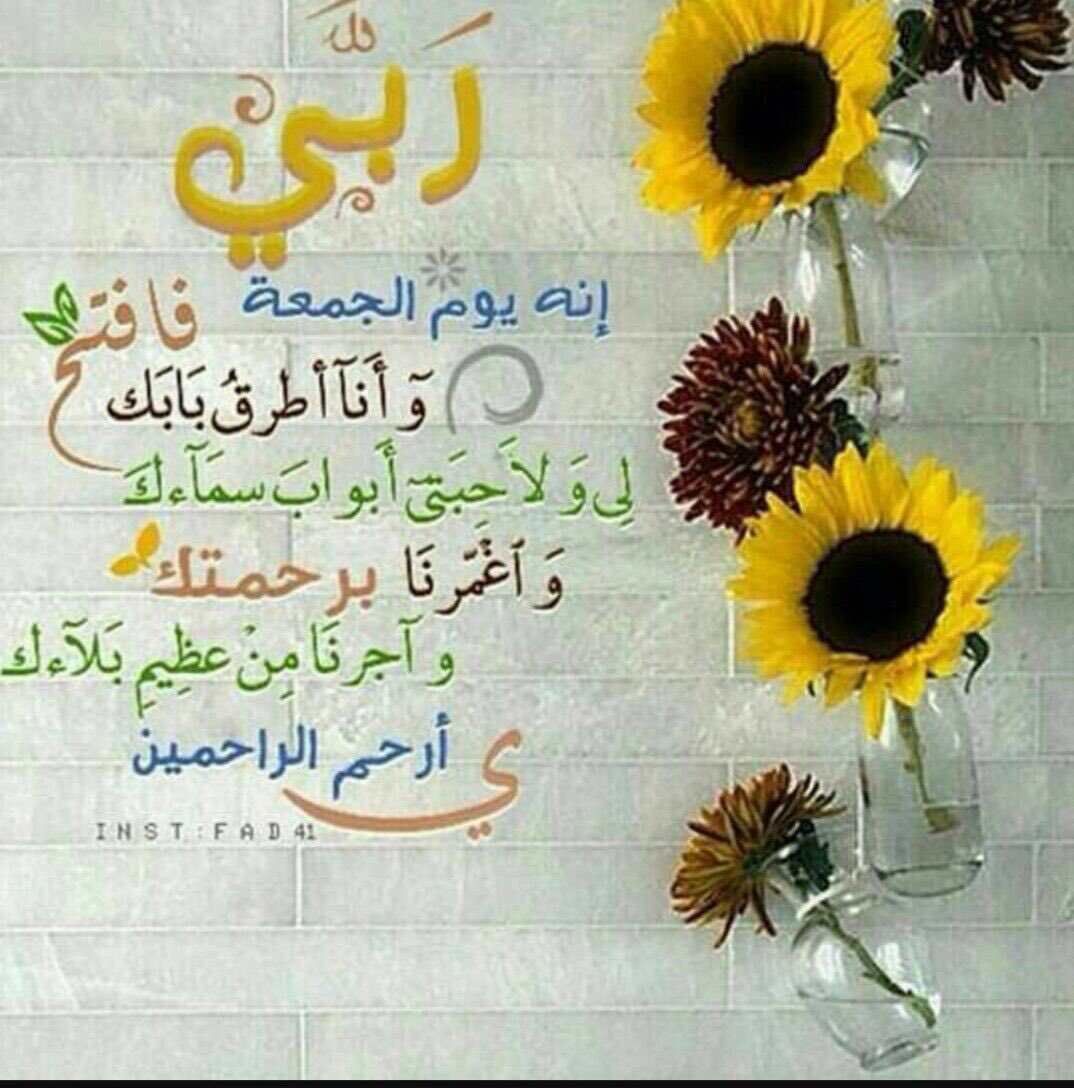 لله
رَبَّي
إنه يوم الجمعة
وَ أَنآ أطرقُ بَابَك فافتح
لِي وَ لاَحِبَتيَ أبوابَ سمَآءكَ
وَ ٱغْمّرنَا برحمتك
و آجرنَا مِنْ عظِيمِ بَلآءك
ي أرحم الراحمين
INST:FAD41